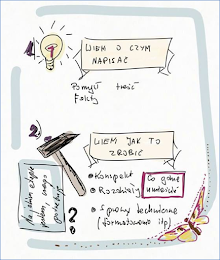 1.
WIEM O CZYM
NAPISAĆ
Pomysł treść
Fakty
2)
WIEM JAK TO
ZROBIĆ
Konspekt
Rozdziały
Co gdzie
umieścić
Sprawy techniczne
(formatowanie itp)
?